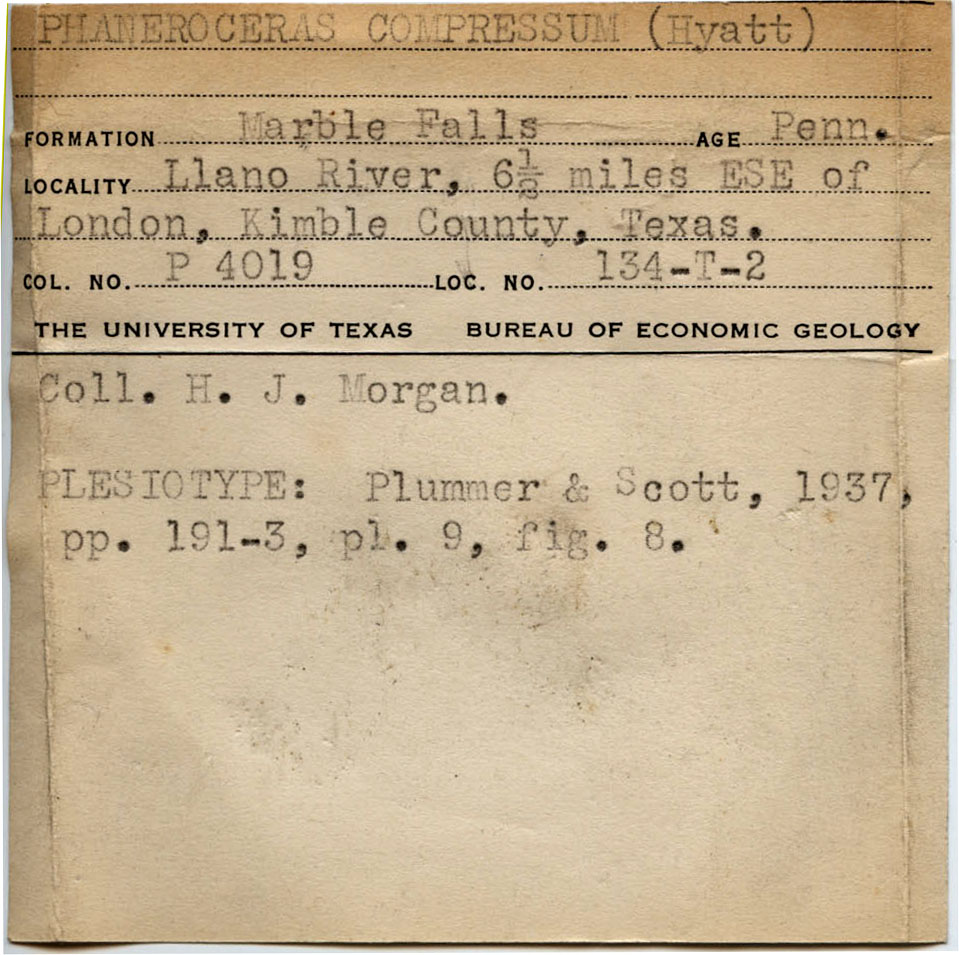 PHANEROCERAS COMPRESSUM (Hyatt)
FORMATION Marble Falls AGE Penn.
LOCALITY Llano River, 6½ miles ESE of
London, Kimble County, Texas.
COL. NO. P 4019 LOC. NO. 134-T-2
THE UNIVERSITY OF TEXAS BUREAU OF ECONOMIC GEOLOGY
Coll. H. J. Morgan.
PLESIOTYPE: Plummer & Scott, 1937,
pp. 191-3, pl. 9, fig. 8.